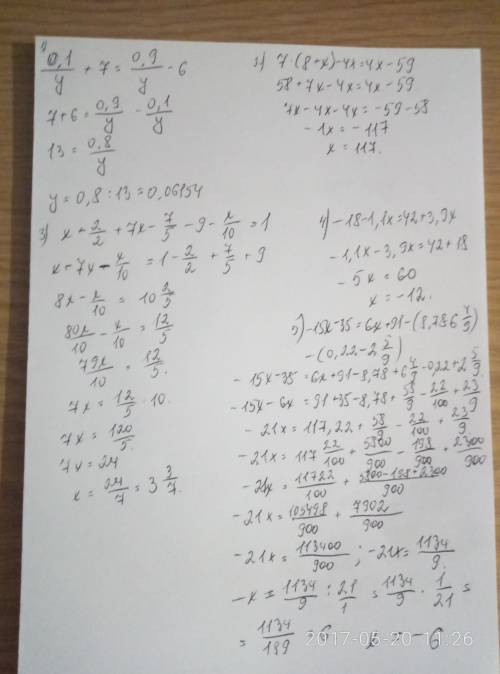 1)
0,1/y + 7 = 0,9/y - 6
7+6 = 0,9/y - 0,1/y
13 = 0,8/y
y = 0,8 : 13 = 0,06154
2) 7·(8+x)-4x=4x-59
58+7x-4x=4x-59
7x-4x-4x=-59-58
-1x = -117
x = 117.
3) x + 2/2 + 7x - 7/5 - 9 - x/10 = 1
x+7x - x/10 = 1 - 2/2 + 7/5 + 9
8x - x/10 = 10 2/5
80x/10 - x/10 = 12/5
79x/10 = 12/5.
7x = 12/5 · 10.
7x = 120/5.
7x = 24
x = 24/7 = 3 3/7.
4) -18-1,1x=42+3,9x
-1,1x-3,9x=42+18
-5x = 60
x = -12.
5) -15x-35 = 6x+91-(8,78 6 4/9)
-(0,22-2 5/9)
-15x-35 = 6x+91-8,78+6 4/9-0,22+2 5/9
-15x-6x = 91+35-8,78+ 58/9 - 22/100 + 23/9
-21x = 117,22 + 58/9 - 22/100 + 23/9
-21x = 117 22/100 + 5800/900 - 198/900 + 2300/900
-21x = 11722/100 + 5800-198+2300/900
-21x = 105498/900 + 7902/900
-21x = 113400/900 ; -21x = 1134/9.
-x = 1134/9 : 21/1 = 1134/9 · 1/21 =
= 1134/189 = 6 x = -6
2017-05-20 11:26